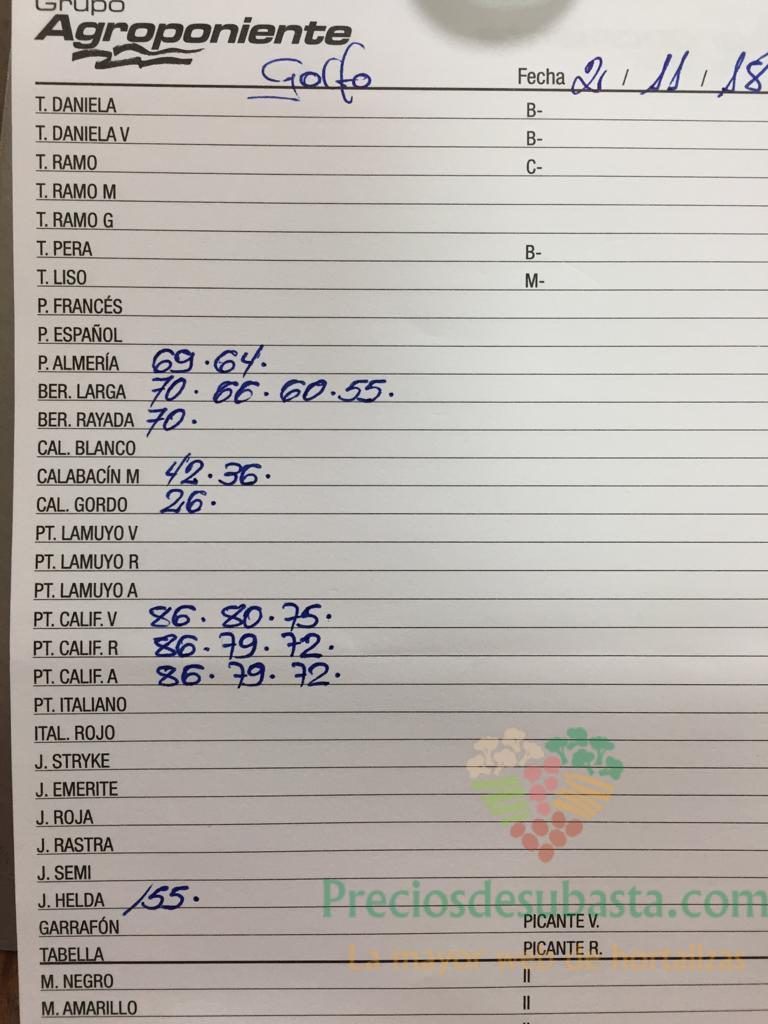 Grupo
Agroponiente
Golfo Fecha 2 / 11 / 18
T. DANIELA B-
T. DANIELA V B-
T. RAMO C-
T. RAMO M
T. RAMO G
T. PERA B-
T. LISO M-
P. FRANCÉS
P. ESPAÑOL
P. ALMERÍA 69 · 64 ·
BER. LARGA 70 · 66 · 60 · 55 ·
BER. RAYADA 70 ·
CAL. BLANCO
CALABACÍN M 42 · 36 ·
CAL. GORDO 26 ·
PT. LAMUYO V
PT. LAMUYO R
PT. LAMUYO A
PT. CALIF. V 86 · 80 · 75 ·
PT. CALIF. R 86 · 79 · 72 ·
PT. CALIF. A 86 · 79 · 72 ·
PT. ITALIANO
ITAL. ROJO
J. STRYKE
J. EMERITE
J. ROJA
J. RASTRA
J. SEMI
J. HELDA 155 ·
Preciosdesubasta.com
GARRAFÓN PICANTE V.
TABELLA PICANTE R.
La mayor web de hortalizas
M. NEGRO II
M. AMARILLO II